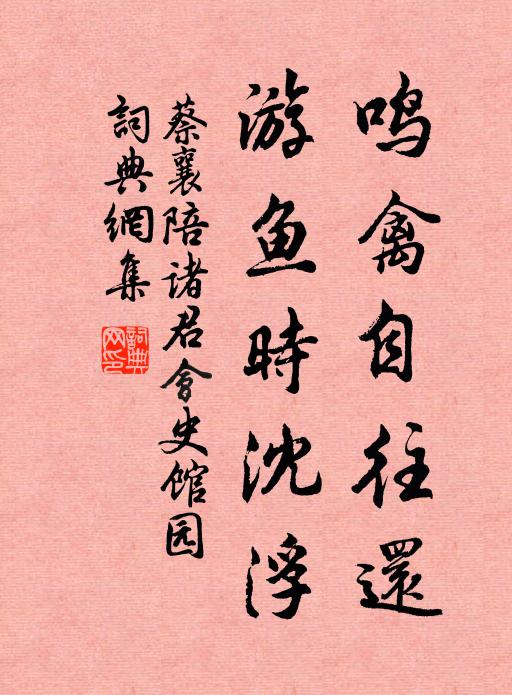 鸣禽自往還
游鱼時沈浮
蔡襄陪诸君會史馆园
詞典網集
詞典网印